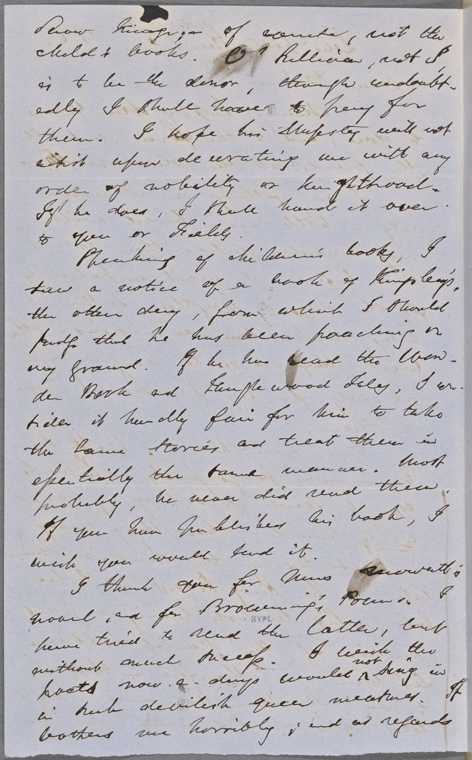 of course, not the
child's books. O'Sullivan, not I,
is to be the donor, though undoubt-
edly I shall have to pay for
them. I hope his Majesty will not
insist upon decorating me with any
order of nobility or knighthood.
If he does, I shall hand it over
to you or Fields.
Speaking of children's books, I
saw a notice of a book of Kingsley's,
the other day, from which I should
judge that he has been poaching on
my ground. If he has read the Won-
der Book and Tanglewood Tales, I con-
sider it hardly fair for him to take
the same stories and treat them in
essentially the same manner. Most
probably, he never did read them.
If you have published his book, I
wish you would send it.
I thank you for Miss
novel, and for Browning's Poems. I
have tried to read the latter, but
without much success. I wish the
poets now-a-days would not sing in
in such devilish queer measures. It
bothers me horribly; and as regards
NYPL